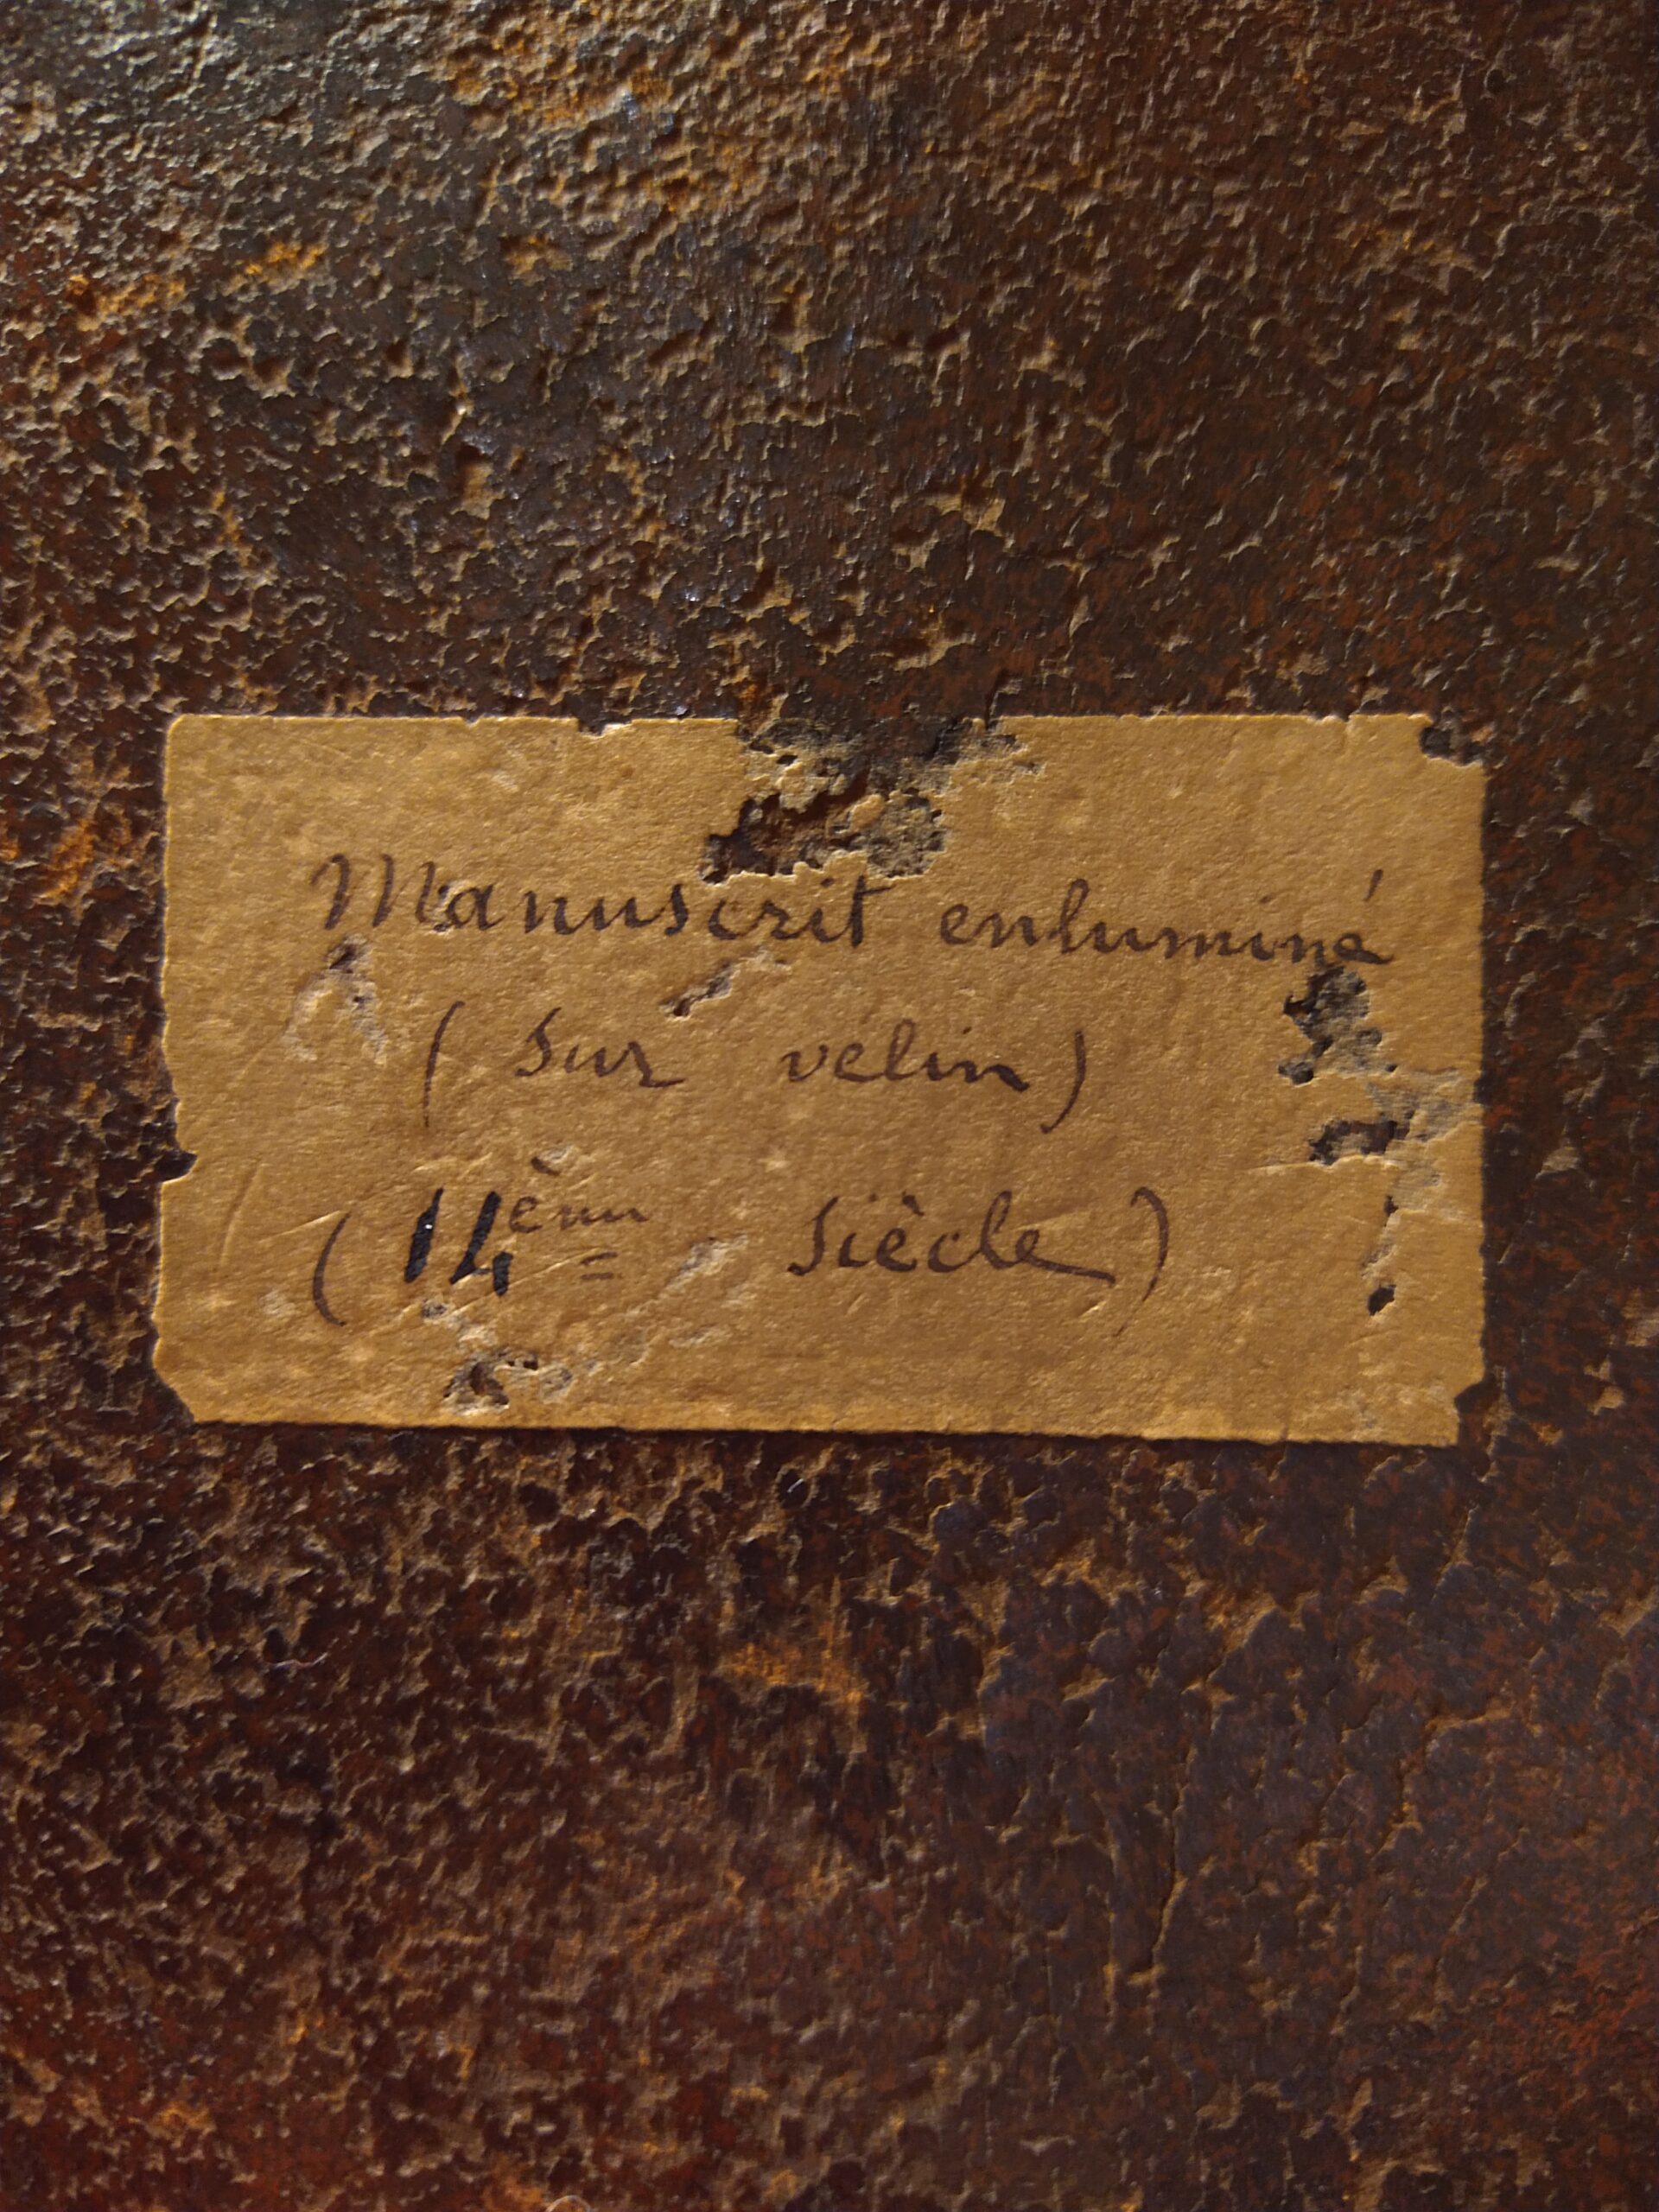 Manuscrit enluminé
(Sur vélin)
(14ème Siècle)